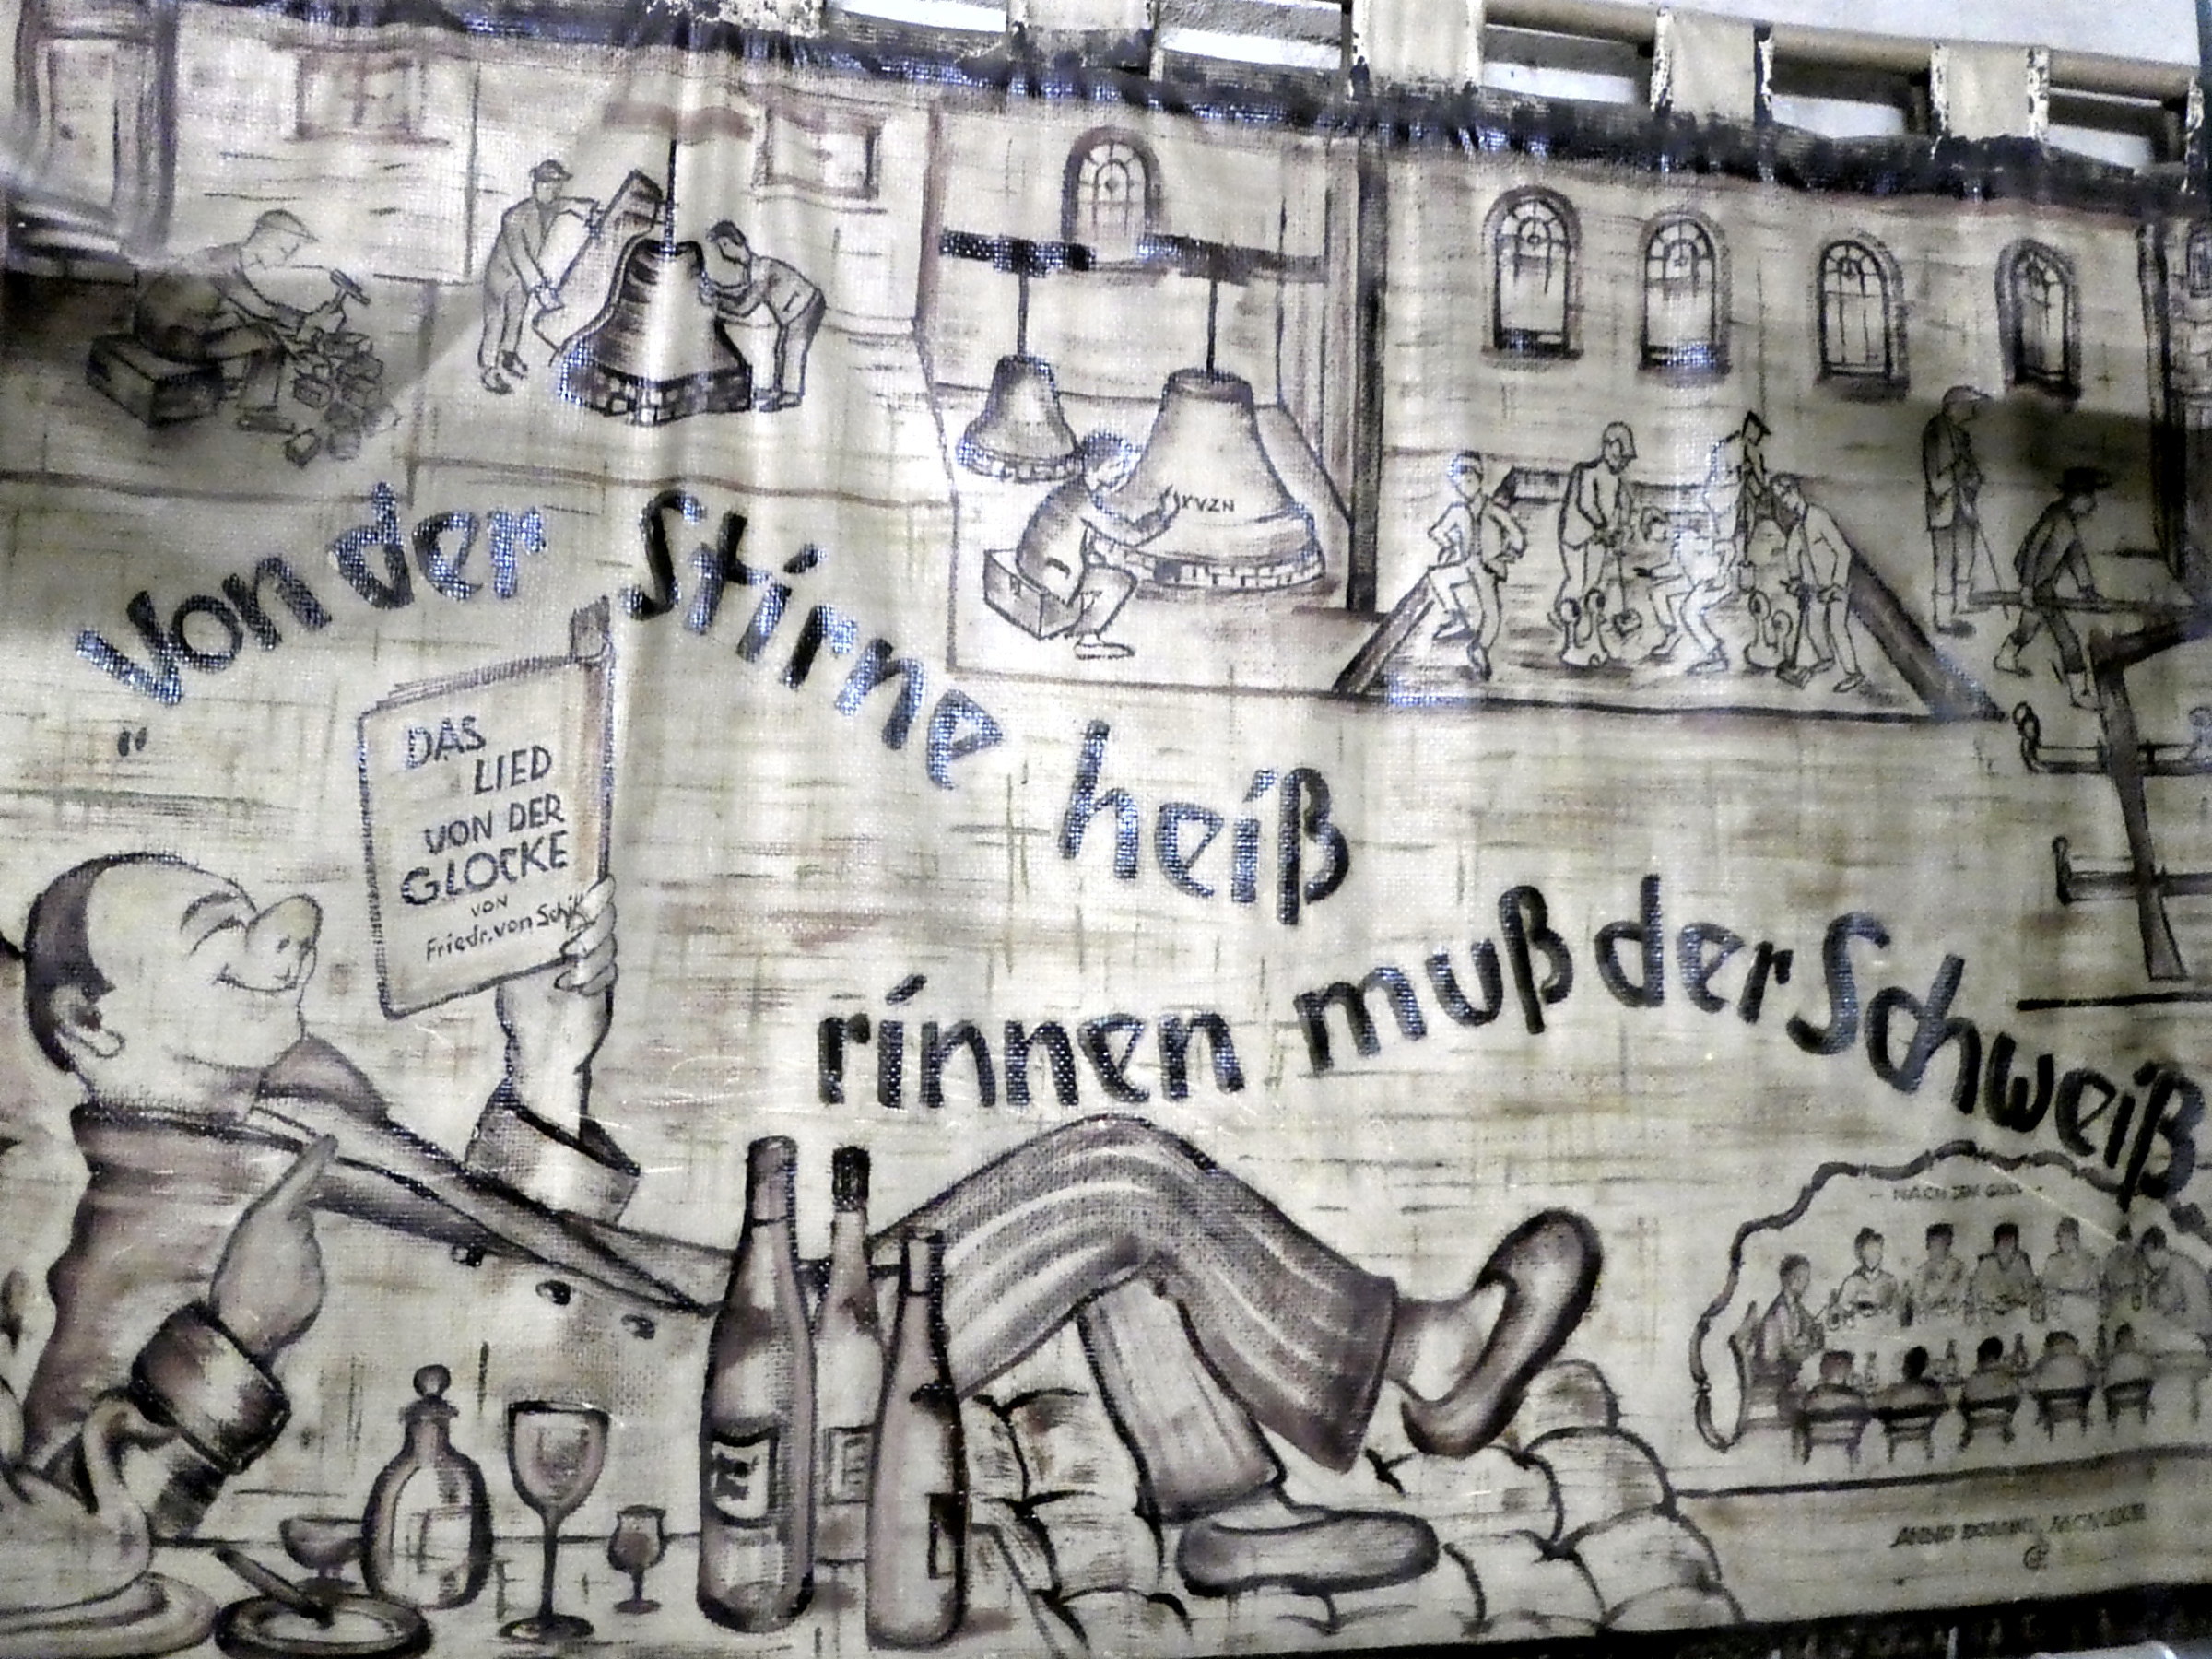 "Von der Stirne heiß
rinnen muß der Schweiß
DAS
LIED
VON DER
GLOCKE
VON
Friedr. von Schil
- NACH DEM GUSS -
ANNO DOMINI